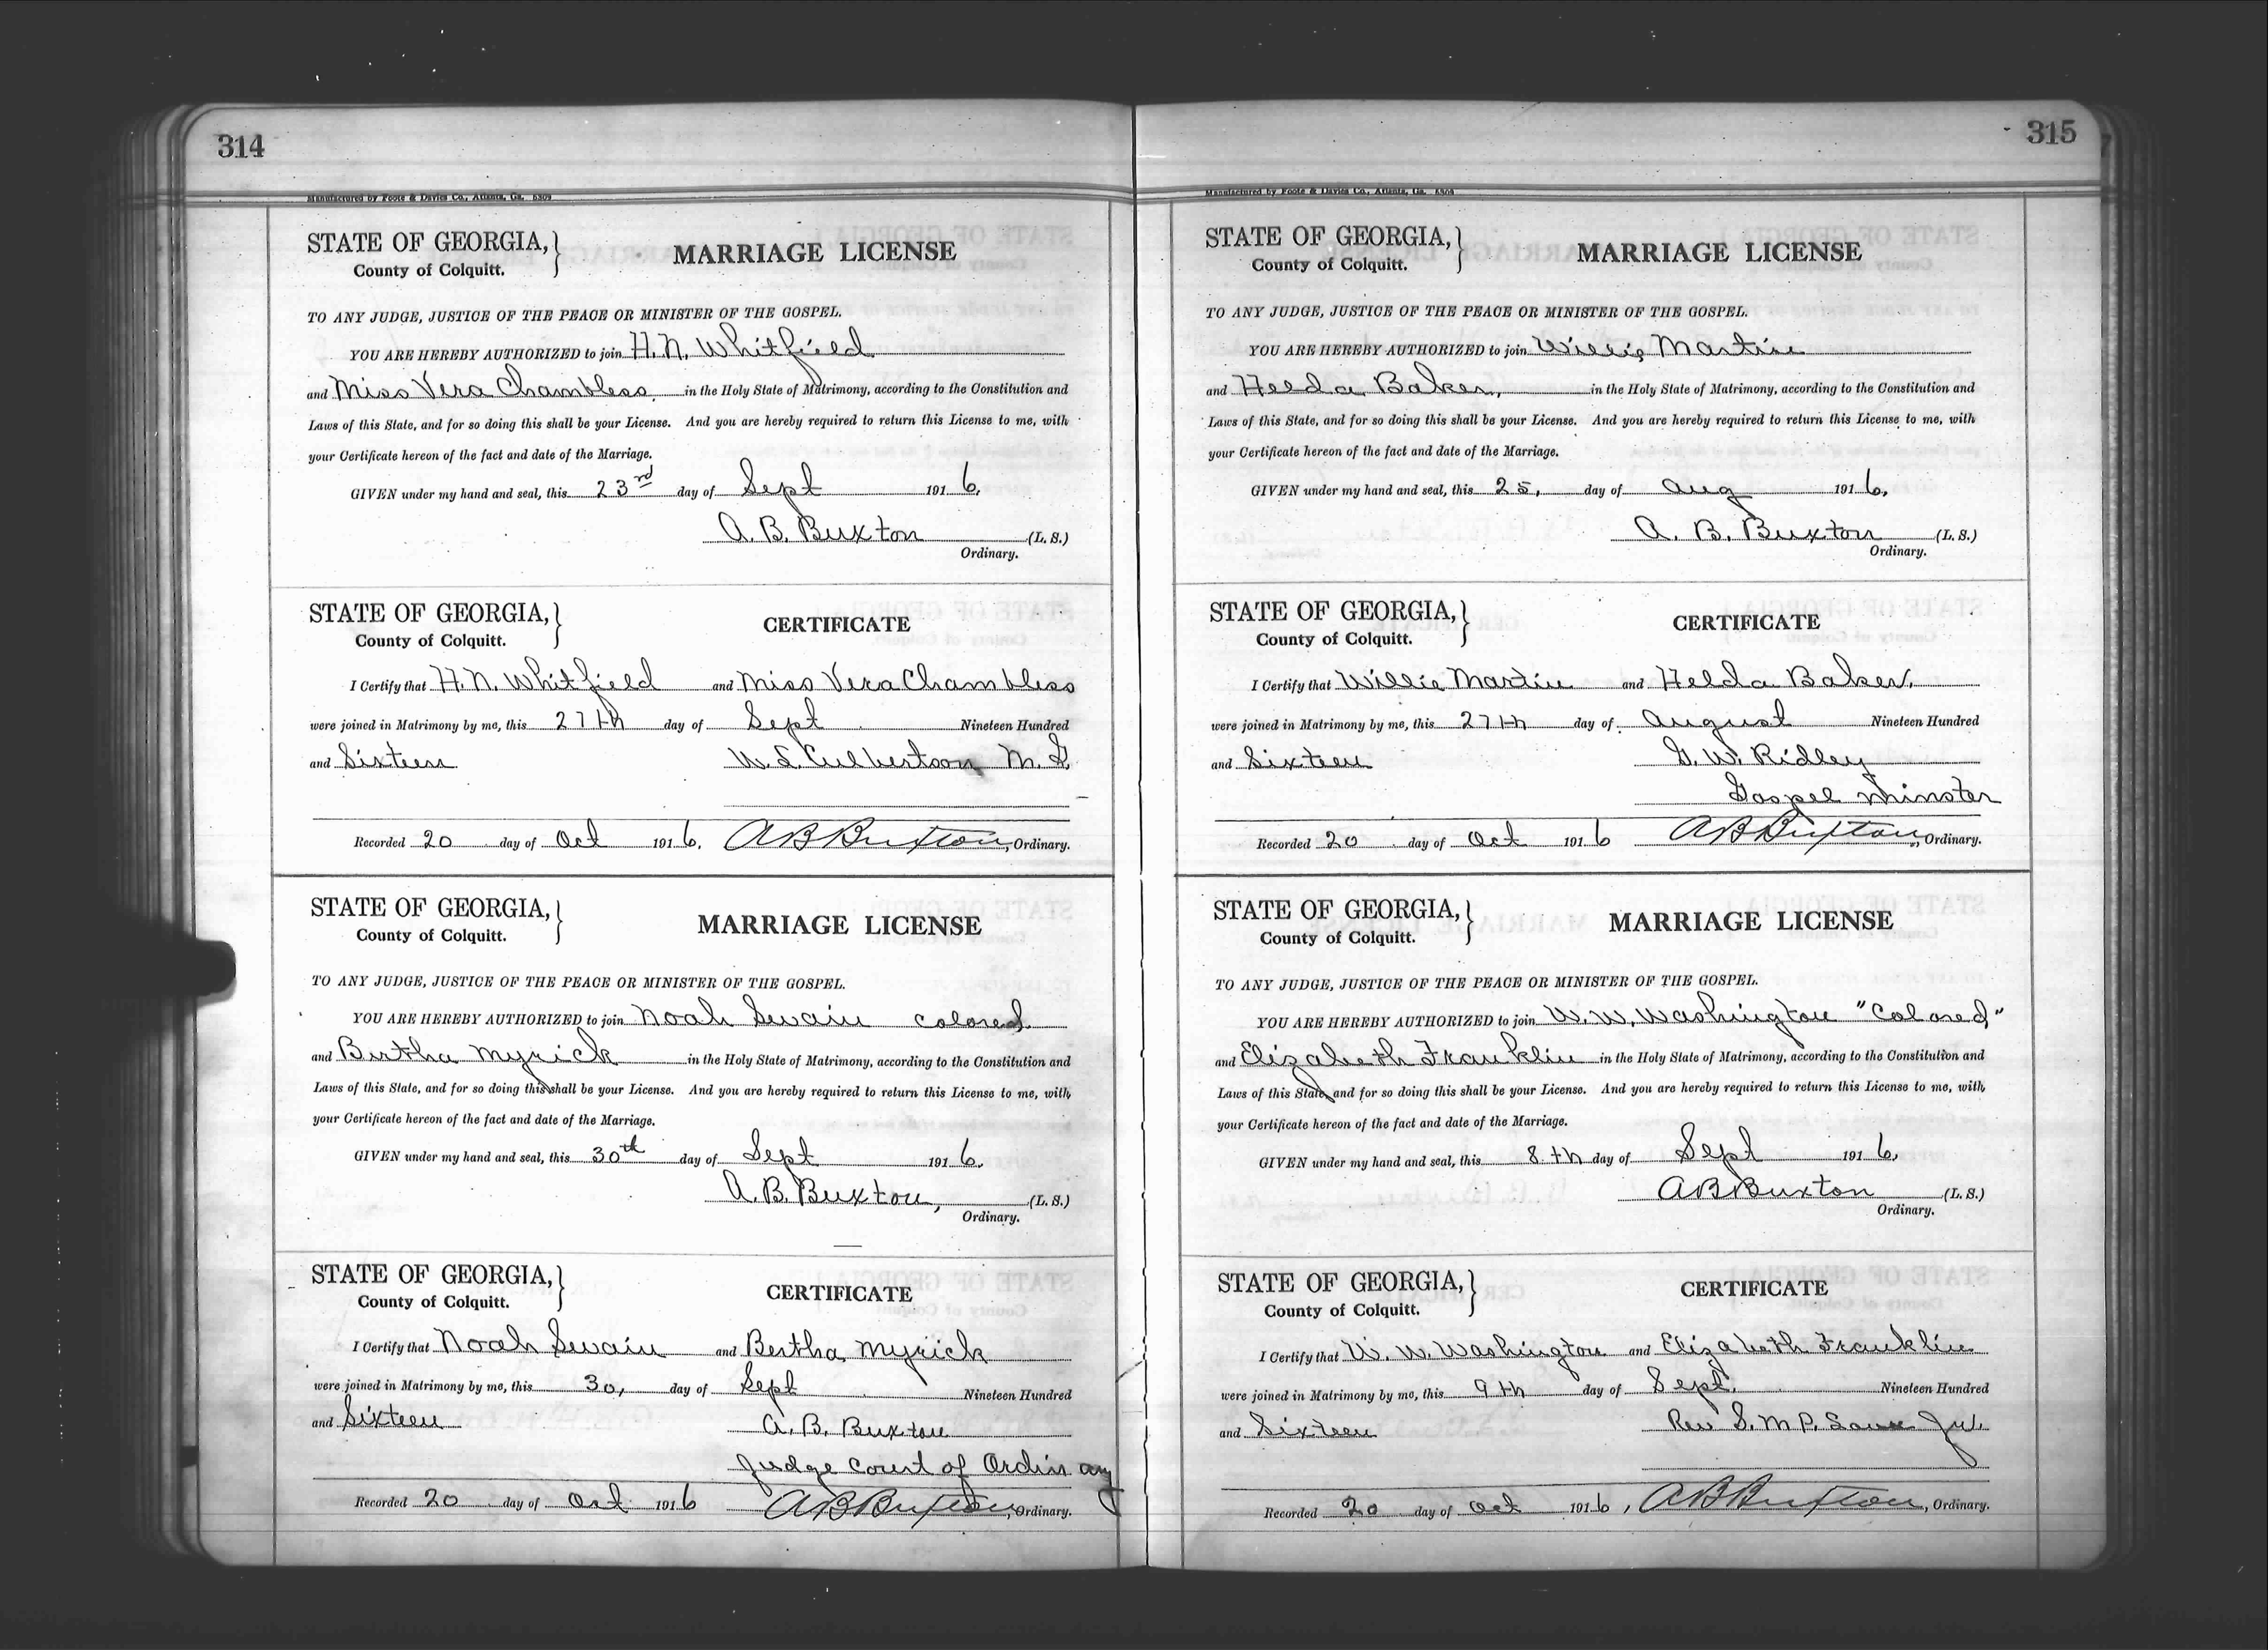 314
Manufactured by Foote & Davies Co., Atlanta, Ga. 5309
STATE OF GEORGIA, MARRIAGE LICENSE
County of Colquitt.
TO ANY JUDGE, JUSTICE OF THE PEACE OR MINISTER OF THE GOSPEL.
YOU ARE HEREBY AUTHORIZED to join H. N. Whitfield
and Miss Vera Chambless in the Holy State of Matrimony, according to the Constitution and
Laws of this State, and for so doing this shall be your License. And you are hereby required to return this License to me, with
your Certificate hereon of the fact and date of the Marriage.
GIVEN under my hand and seal, this 23rd day of Sept 1916.
A. B. Buxton (L. S.)
Ordinary.
STATE OF GEORGIA, CERTIFICATE
County of Colquitt.
I Certify that H. N. Whitfield and Miss Vera Chambless
were joined in Matrimony by me, this 27th day of Sept Nineteen Hundred
and Sixteen W. L. Culbertson M. G.
Recorded 20 day of Oct 1916. A B Buxton, Ordinary.
STATE OF GEORGIA, MARRIAGE LICENSE
County of Colquitt.
TO ANY JUDGE, JUSTICE OF THE PEACE OR MINISTER OF THE GOSPEL.
YOU ARE HEREBY AUTHORIZED to join Noah Swain colored
and Bertha Myrick in the Holy State of Matrimony, according to the Constitution and
Laws of this State, and for so doing this shall be your License. And you are hereby required to return this License to me, with
your Certificate hereon of the fact and date of the Marriage.
GIVEN under my hand and seal, this 30th day of Sept 1916.
A. B. Buxton, (L. S.)
Ordinary.
STATE OF GEORGIA, CERTIFICATE
County of Colquitt.
I Certify that Noah Swain and Bertha Myrick
were joined in Matrimony by me, this 30, day of Sept Nineteen Hundred
and Sixteen A. B. Buxton
Judge Court of Ordinary
Recorded 20 day of Oct 1916 A B Buxton, Ordinary.
315
Manufactured by Foote & Davies Co., Atlanta, Ga. 5309
STATE OF GEORGIA, MARRIAGE LICENSE
County of Colquitt.
TO ANY JUDGE, JUSTICE OF THE PEACE OR MINISTER OF THE GOSPEL.
YOU ARE HEREBY AUTHORIZED to join Willie Martin
and Helda Baker, in the Holy State of Matrimony, according to the Constitution and
Laws of this State, and for so doing this shall be your License. And you are hereby required to return this License to me, with
your Certificate hereon of the fact and date of the Marriage.
GIVEN under my hand and seal, this 25, day of Aug 1916.
A. B. Buxton (L. S.)
Ordinary.
STATE OF GEORGIA, CERTIFICATE
County of Colquitt.
I Certify that Willie Martin and Helda Baker.
were joined in Matrimony by me, this 27th day of August Nineteen Hundred
and Sixteen G. W. Ridley
Gospel Minster
Recorded 20 day of Oct 1916 A B Buxton, Ordinary.
STATE OF GEORGIA, MARRIAGE LICENSE
County of Colquitt.
TO ANY JUDGE, JUSTICE OF THE PEACE OR MINISTER OF THE GOSPEL.
YOU ARE HEREBY AUTHORIZED to join W. W. Washington "Colored"
and Elizabeth Franklin in the Holy State of Matrimony, according to the Constitution and
Laws of this State, and for so doing this shall be your License. And you are hereby required to return this License to me, with
your Certificate hereon of the fact and date of the Marriage.
GIVEN under my hand and seal, this 8th day of Sept 1916.
A B Buxton (L. S.)
Ordinary.
STATE OF GEORGIA, CERTIFICATE
County of Colquitt.
I Certify that W. W. Washington and Elizabeth Franklin
were joined in Matrimony by me, this 9th day of Sept. Nineteen Hundred
and Sixteen Rev S. M. P.
Recorded 20 day of Oct 1916, A B Buxton, Ordinary.